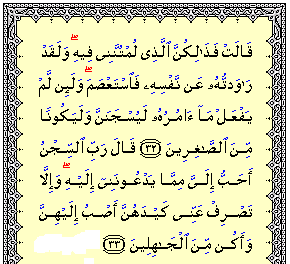 قَالَتْ فَذَٰلِكُنَّ ٱلَّذِى لُمْتُنَّنِى فِيهِ ۖ وَلَقَدْ
رَٰوَدتُّهُۥ عَن نَّفْسِهِۦ فَٱسْتَعْصَمَ ۖ وَلَئِن لَّمْ
يَفْعَلْ مَآ ءَامُرُهُۥ لَيُسْجَنَنَّ وَلَيَكُونًا
مِّنَ ٱلصَّٰغِرِينَ ٣٢ قَالَ رَبِّ ٱلسِّجْنُ
أَحَبُّ إِلَىَّ مِمَّا يَدْعُونَنِىٓ إِلَيْهِ ۖ وَإِلَّا
تَصْرِفْ عَنِّى كَيْدَهُنَّ أَصْبُ إِلَيْهِنَّ
وَأَكُن مِّنَ ٱلْجَٰهِلِينَ ٣٣